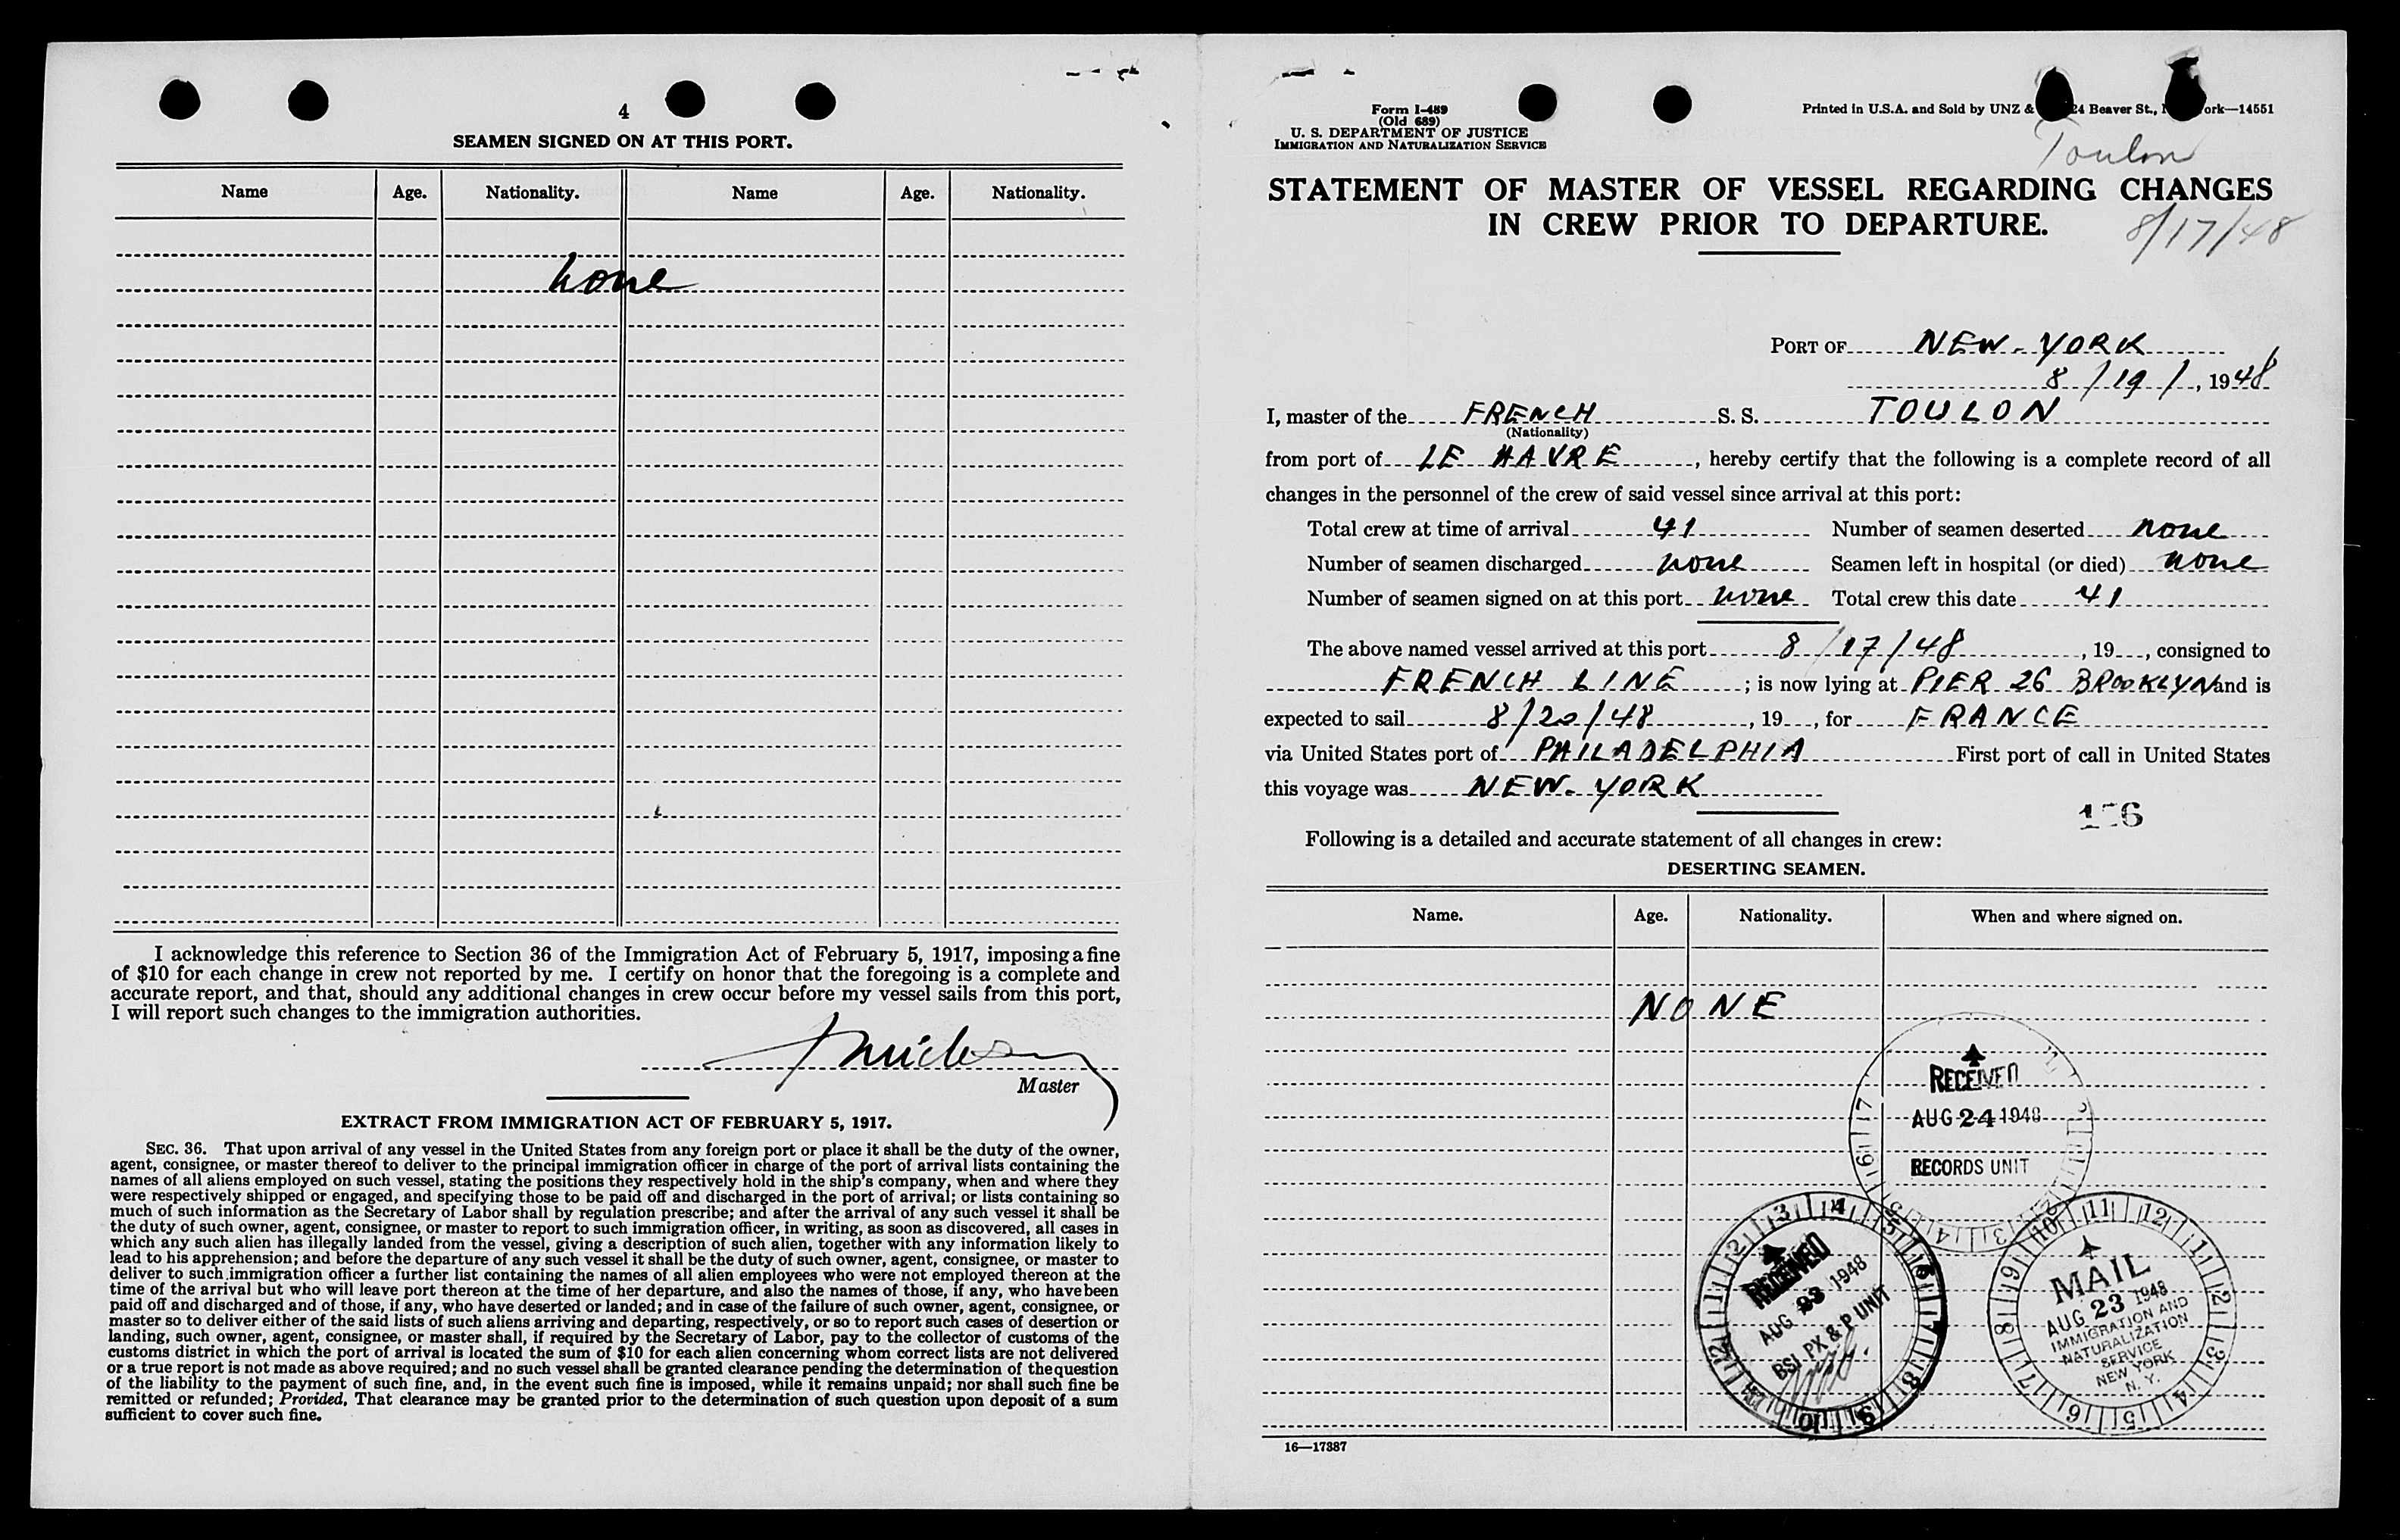 4
SEAMEN SIGNED ON AT THIS PORT.
Name Age. Nationality. Name Age. Nationality.
none
I acknowledge this reference to Section 36 of the Immigration Act of February 5, 1917, imposing a fine
of $10 for each change in crew not reported by me. I certify on honor that the foregoing is a complete and
accurate report, and that, should any additional changes in crew occur before my vessel sails from this port,
I will report such changes to the immigration authorities.
Master
EXTRACT FROM IMMIGRATION ACT OF FEBRUARY 5, 1917.
SEC. 36. That upon arrival of any vessel in the United States from any foreign port or place it shall be the duty of the owner,
agent, consignee, or master thereof to deliver to the principal immigration officer in charge of the port of arrival lists containing the
names of all aliens employed on such vessel, stating the positions they respectively hold in the ship's company, when and where they
were respectively shipped or engaged, and specifying those to be paid off and discharged in the port of arrival; or lists containing so
much of such information as the Secretary of Labor shall by regulation prescribe; and after the arrival of any such vessel it shall be
the duty of such owner, agent, consignee, or master to report to such immigration officer, in writing, as soon as discovered, all cases in
which any such alien has illegally landed from the vessel, giving a description of such alien, together with any information likely to
lead to his apprehension; and before the departure of any such vessel it shall be the duty of such owner, agent, consignee, or master to
deliver to such immigration officer a further list containing the names of all alien employees who were not employed thereon at the
time of the arrival but who will leave port thereon at the time of her departure, and also the names of those, if any, who have been
paid off and discharged and of those, if any, who have deserted or landed; and in case of the failure of such owner, agent, consignee, or
master so to deliver either of the said lists of such aliens arriving and departing, respectively, or so to report such cases of desertion or
landing, such owner, agent, consignee, or master shall, if required by the Secretary of Labor, pay to the collector of customs of the
customs district in which the port of arrival is located the sum of $10 for each alien concerning whom correct lists are not delivered
or a true report is not made as above required; and no such vessel shall be granted clearance pending the determination of the question
of the liability to the payment of such fine, and, in the event such fine is imposed, while it remains unpaid; nor shall such fine be
remitted or refunded; Provided, That clearance may be granted prior to the determination of such question upon deposit of a sum
sufficient to cover such fine.
Form I-489
(Old 689)
U. S. DEPARTMENT OF JUSTICE
IMMIGRATION AND NATURALIZATION SERVICE
Printed in U.S.A. and Sold by UNZ & 24 Beaver St., ork—14551
Toulon
STATEMENT OF MASTER OF VESSEL REGARDING CHANGES
IN CREW PRIOR TO DEPARTURE.
8/17/48
PORT OF NEW-YORK
8/19/, 1948
I, master of the FRENCH S. S. TOULON
(Nationality)
from port of LE HAVRE, hereby certify that the following is a complete record of all
changes in the personnel of the crew of said vessel since arrival at this port:
Total crew at time of arrival 41 Number of seamen deserted none
Number of seamen discharged none Seamen left in hospital (or died) none
Number of seamen signed on at this port none Total crew this date 41
The above named vessel arrived at this port 8/17/48, 19, consigned to
FRENCH LINE; is now lying at PIER 26 BROOKLYN and is
expected to sail 8/20/48, 19, for FRANCE
via United States port of PHILADELPHIA First port of call in United States
this voyage was NEW-YORK
Following is a detailed and accurate statement of all changes in crew:
DESERTING SEAMEN.
Name. Age. Nationality. When and where signed on.
NONE
RECEIVED
AUG 24 1948
RECORDS UNIT
RECEIVED
AUG 23 1948
BSI PX & P UNIT
MAIL
AUG 23 1948
IMMIGRATION AND
NATURALIZATION
SERVICE
NEW YORK
N. Y.
16—17387